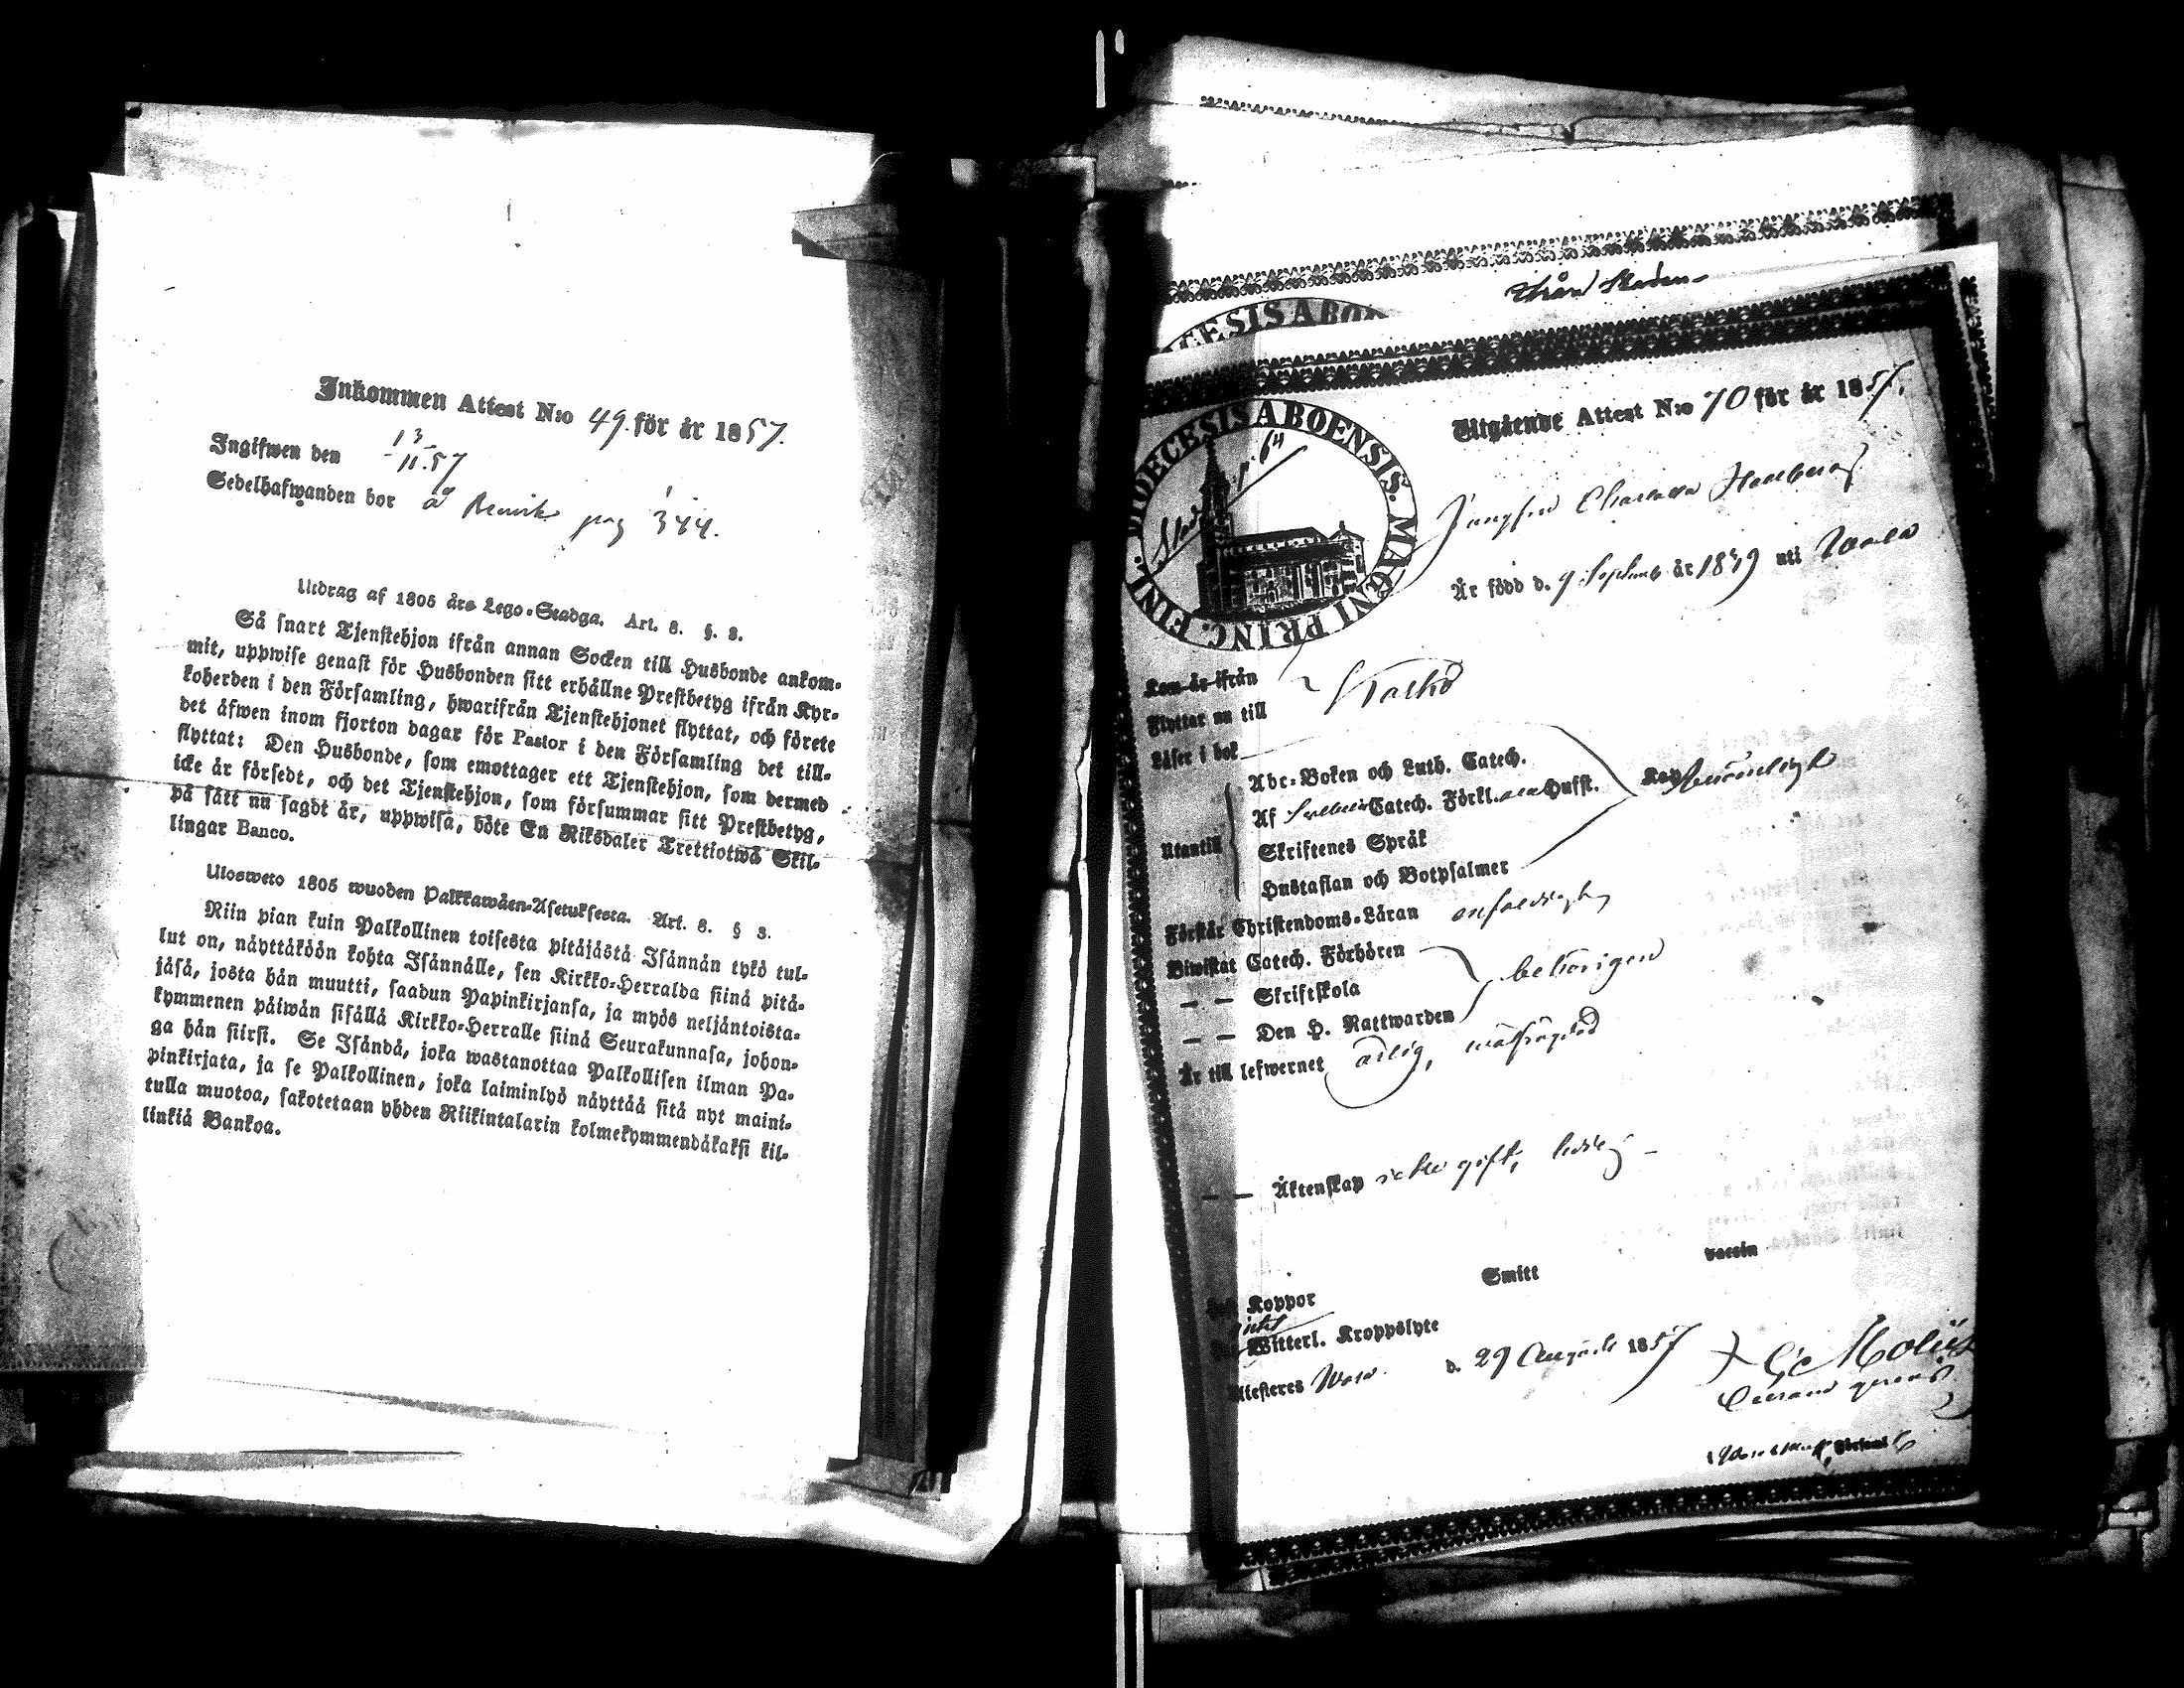 Inkommen Attest N:o 49. för år 1857.
Ingifwen den 13/11.57
Sedelhafwanden bor å Remik pag 344.
Utdrag af 1805 års Lego-Stadga. Art. 8. §. 3.
Så snart Tjenstehjon ifrån annan Socken till Husbonde ankom-
mit, uppwise genast för Husbonden sitt erhållne Prestbetyg ifrån Kyr-
koherden i den Församling, hwarifrån Tjenstehjonet flyttat, och förete
det äfwen inom fjorton dagar för Pastor i den Församling det till-
flyttat: Den Husbonde, som emottager ett Tjenstehjon, som dermed
icke är försedt, och det Tjenstehjon, som försummar sitt Prestbetyg,
på sätt nu sagdt är, uppwisa, böte En Riksdaler Trettiotwå Skil-
lingar Banco.
Ulosweto 1805 wuoden Palkkawäen-Asetuksesta. Art. 8. § 3.
Niin pian kuin Palkollinen toisesta pitäjästä Isännän tykö tul-
lut on, näyttäköön kohta Isännälle, sen Kirkko-Herralda siinä pitä-
jäsä, josta hän muutti, saadun Papinkirjansa, ja myös neljäntoista-
kymmenen päiwän sisällä Kirkko-Herralle siinä Seurakunnasa, johon-
ga hän siirsi. Se Isändä, joka wastanottaa Palkollisen ilman Pa-
pinkirjata, ja se Palkollinen, joka laiminlyö näyttää sitä nyt maini-
tulla muotoa, sakotetaan yhden Riikintalarin kolmekymmendäkaksi kil-
linkiä Bankoa.
DIOECESIS ABOENSIS. MAGNI PRINC. FINL.
Utgående Attest N:o 70 för år 1857.
Jungfru Charlotta
Är född d. 9 Septemb år 1839 uti
Kom år ifrån
Flyttar nu till
Läser i bok
Abc-Boken och Luth. Catech.
Af Catech. Förkl. Husst.
Utantill Skriftenes Språk
Hustaflan och Botpsalmer
Förstår Christendoms-Läran enfaldigtwis
Biwistat Catech. Förhören
— — Skriftskola behörigen
— — Den H. Nattwarden
Är till lefwernet ärlig,
— — Äktenskap icke gift, ledig —
vaccin
Smitt
Koppor
Witterl. Kroppslyte
Attesteres d. 29 Augusti 1857
Församl